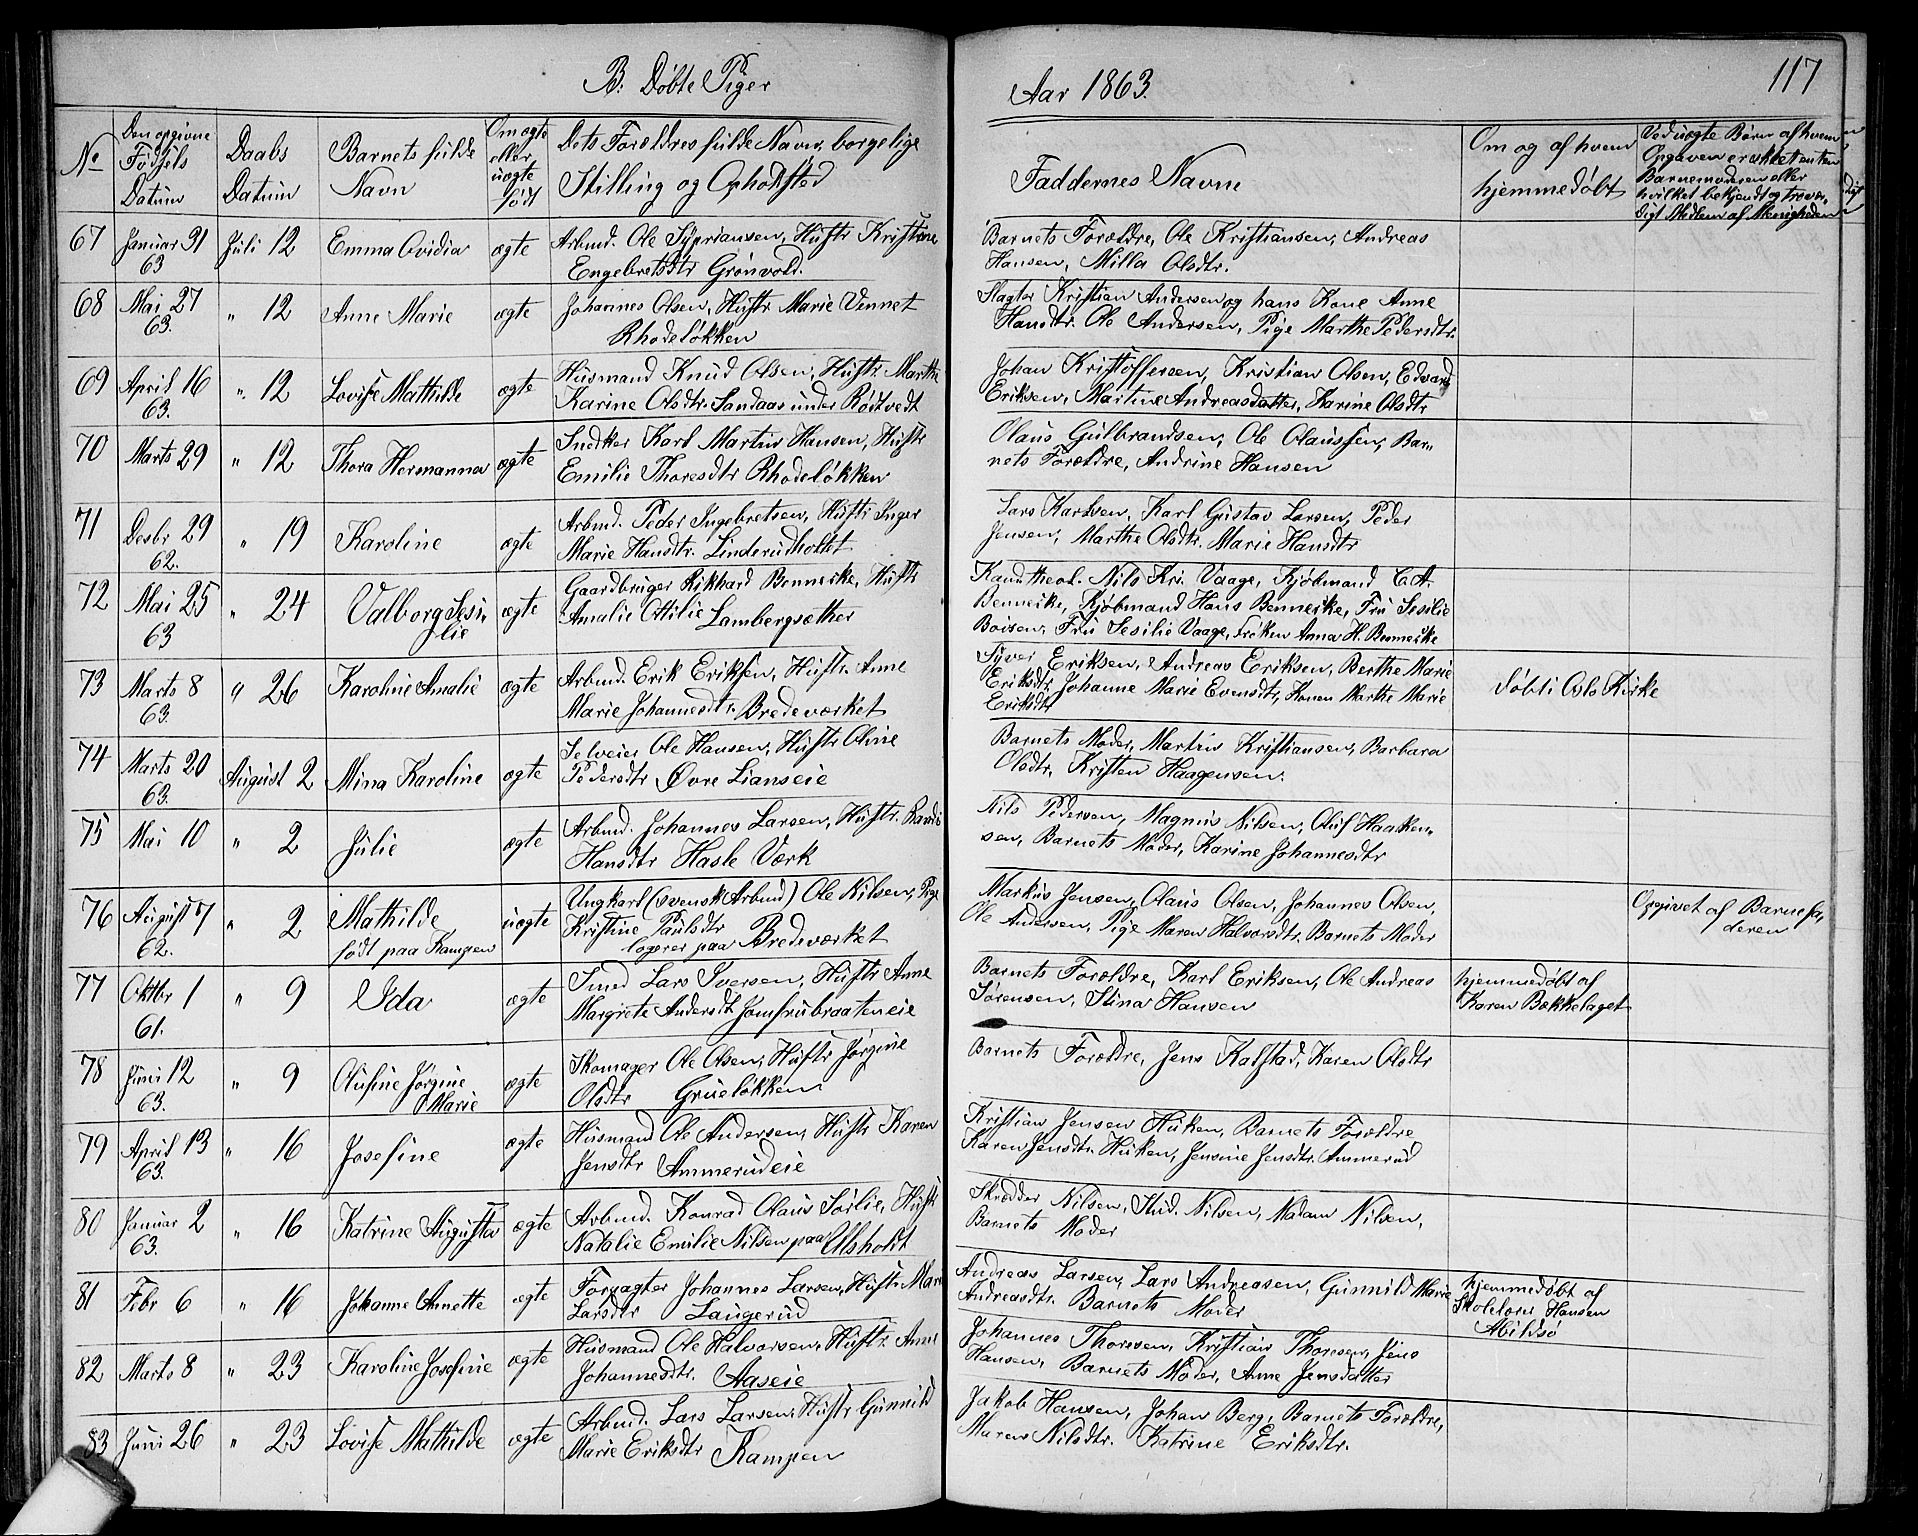 B. Døbte Piger
Aar 1863.
117
No
Den opgivne
Fødsels
Datum
Daabs
Datum
Barnets fulde
Navn
Om ægte
eller
uægte
født
Dets Forældres fulde Navn, borgelige
Stilling og Opholdsted
Faddernes Navne
Om og af hvem
hjemmedøbt
Ved uægte Børn af hvem
Opgaven er skeet enten
Barnemoderen eller
hvilket bekjendt og trovær-
digt Medlem af Menigheden
67 Januar 31 Juli 12 Emma Ovidia ægte Arbmd. Ole Sypriansen, Hustr Kristine
63 Engebretsdtr Grönvold.
Barnets Forældre, Ole Kristiansen, Andreas
Hansen, Milla Olsdtr.
68 Mai 27 " 12 Anne Marie ægte Johannes Olsen, Hustr Marie Vennet
63. Rhodeløkken
Slagter Kristian Andersen og hans Kone Anne
Hansdtr. Ole Andersen, Pige Marthe Pedersdtr.
69 April 16 " 12 Lovise Mathilde ægte Husmand Knud Olsen, Hustr. Marthe
63. Karine Olsdtr. Sandaas under Rödtvedt
Johan Kristoffersen, Kristian Olsen, Edvard
Eriksen, Martine Andreasdatter, Karine Olsdtr
70 Marts 29 " 12 Thora Hermanna ægte Snedker Karl Martin Hansen, Hustr
Emilie Thoresdtr Rhodeløkken
Olaus Gulbrandsen, Ole Olaussen, Bar-
nets Forældre, Andrine Hansen
71 Desbr 29 " 19 Karoline ægte Arbmd. Peder Ingebretsen, Hustr Inger
62. Marie Hansdtr. Linderudholtet
Lars Karlsen, Karl Gustav Larsen, Peder
Jensen, Marthe Olsdtr. Marie Hansdtr
72 Mai 25 " 24 Valborg Sesi- ægte Gaardbruger Rikhard Benneske, Hustr
63 lie Amalie Ottilie Lambergsæther
Kand. theol. Nils Kri. Vaage, Kjøbmand C. A.
Benneske, Kjøbmand Hans Benneske, Fru Sesilie
Boisen, Fru Sesilie Vaage, Frøken Anna H. Benneske
73 Marts 8 " 26 Karoline Amalie ægte Arbmd. Erik Eriksen, Hustr. Anne
63. Marie Johannesdtr. Bredeværket
Syver Eriksen, Andreas Eriksen, Berthe Marie
Eriksdtr, Johanne Marie Evensdtr, Konen Marthe Marie
Eriksdtr
døbt i Oslo Kirke
74 Marts 20 August 2 Mina Karoline ægte Selveier Ole Hansen, Hustr Oline
63. Pedersdtr Øvre Lianseie
Barnets Moder, Martin Kristiansen, Barbara
Olsdtr, Kristen Haagensen.
75 Mai 10 " 2 Julie ægte Arbmd. Johannes Larsen, Hustr. Randi
Hansdtr Hasle Værk
Nils Pedersen, Magnus Nilsen, Oluf Haaken-
sen, Barnets Moder, Karine Johannesdtr
76 August 7 " 2 Mathilde uægte Ungkarl (svensk Arbmd) Ole Nilsen, Pige
62. født paa Kampen Kristine Paulsdtr
logerer paa Bredeværket
Markus Jensen, Olaus Olsen, Johannes Olsen,
Ole Andersen, Pige Maren Halvorsdtr. Barnets Moder
Opgivet af Barnefa-
deren
77 Oktbr 1 " 9 Ida ægte Smed Lars Iversen, Hustr Anne
61. Margrete Andersdtr Jomfrubraateneie
Barnets Forældre, Karl Eriksen, Ole Andreas
Sørensen, Stina Hansen
hjemmedøbt af
Karen Bækkelaget
78 Juni 12 " 9 Olufine Jørgine ægte Skomager Ole Olsen, Hustr Jørgine
63. Marie Olsdtr Grueløkken
Barnets Forældre, Jens Kalstad, Karen Olsdtr
79 April 13 " 16 Josefine ægte Husmand Ole Andersen, Hustr Karen
63. Jensdtr Ammerudeie
Kristian Jensen Huken, Barnets Forældre
Karen Jensdtr. Huken, Jensine Jensdtr. Ammerud
80 Januar 2 " 16 Katrine Augusta ægte Arbmd. Konrad Olaus Sørlie, Hustr
63. Natalie Emilie Nilsen paa Ulsholdt
Skrædder Nilsen, Stud. Nilsen, Madam Nilsen,
Barnets Moder
81 Febr 6 " 16 Johanne Annette ægte Forpagter Johannes Larsen, Hustr. Mari
Larsdtr Laugerud
Andreas Larsen, Lars Andreasen, Gunnild Marie
Andreasdtr. Barnets Moder
hjemmedøbt af
Skolelærer Hansen
Abildsø
82 Marts 8 " 23 Karoline Josefine ægte Husmand Ole Halvorsen, Hustr. Anne
Johannesdtr. Aaseie
Johannes Thoresen, Kristian Thoresen, Jens
Hansen, Barnets Moder, Anne Jensdatter
83 Juni 26 " 23 Lovise Mathilde ægte Arbmd. Lars Larsen, Hustr Gunnild
Marie Eriksdtr Kampen
Jakob Hansen, Johan Berg, Barnets Forældre,
Maren Nilsdtr. Katrine Eriksdtr.